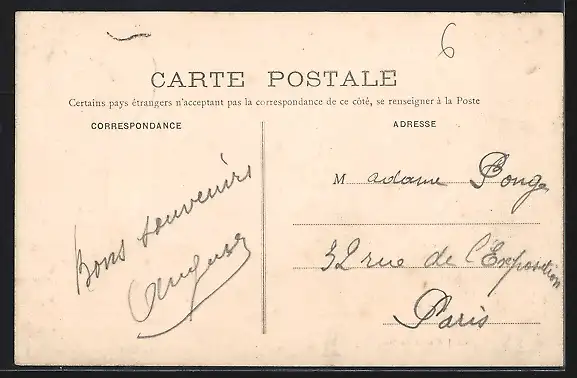 6
CARTE POSTALE
Certains pays étrangers n'acceptant pas la correspondance de ce côté, se renseigner à la Poste
CORRESPONDANCE
Bons souvenirs
ADRESSE
Madame Ponge
32 rue de l'Exposition
Paris